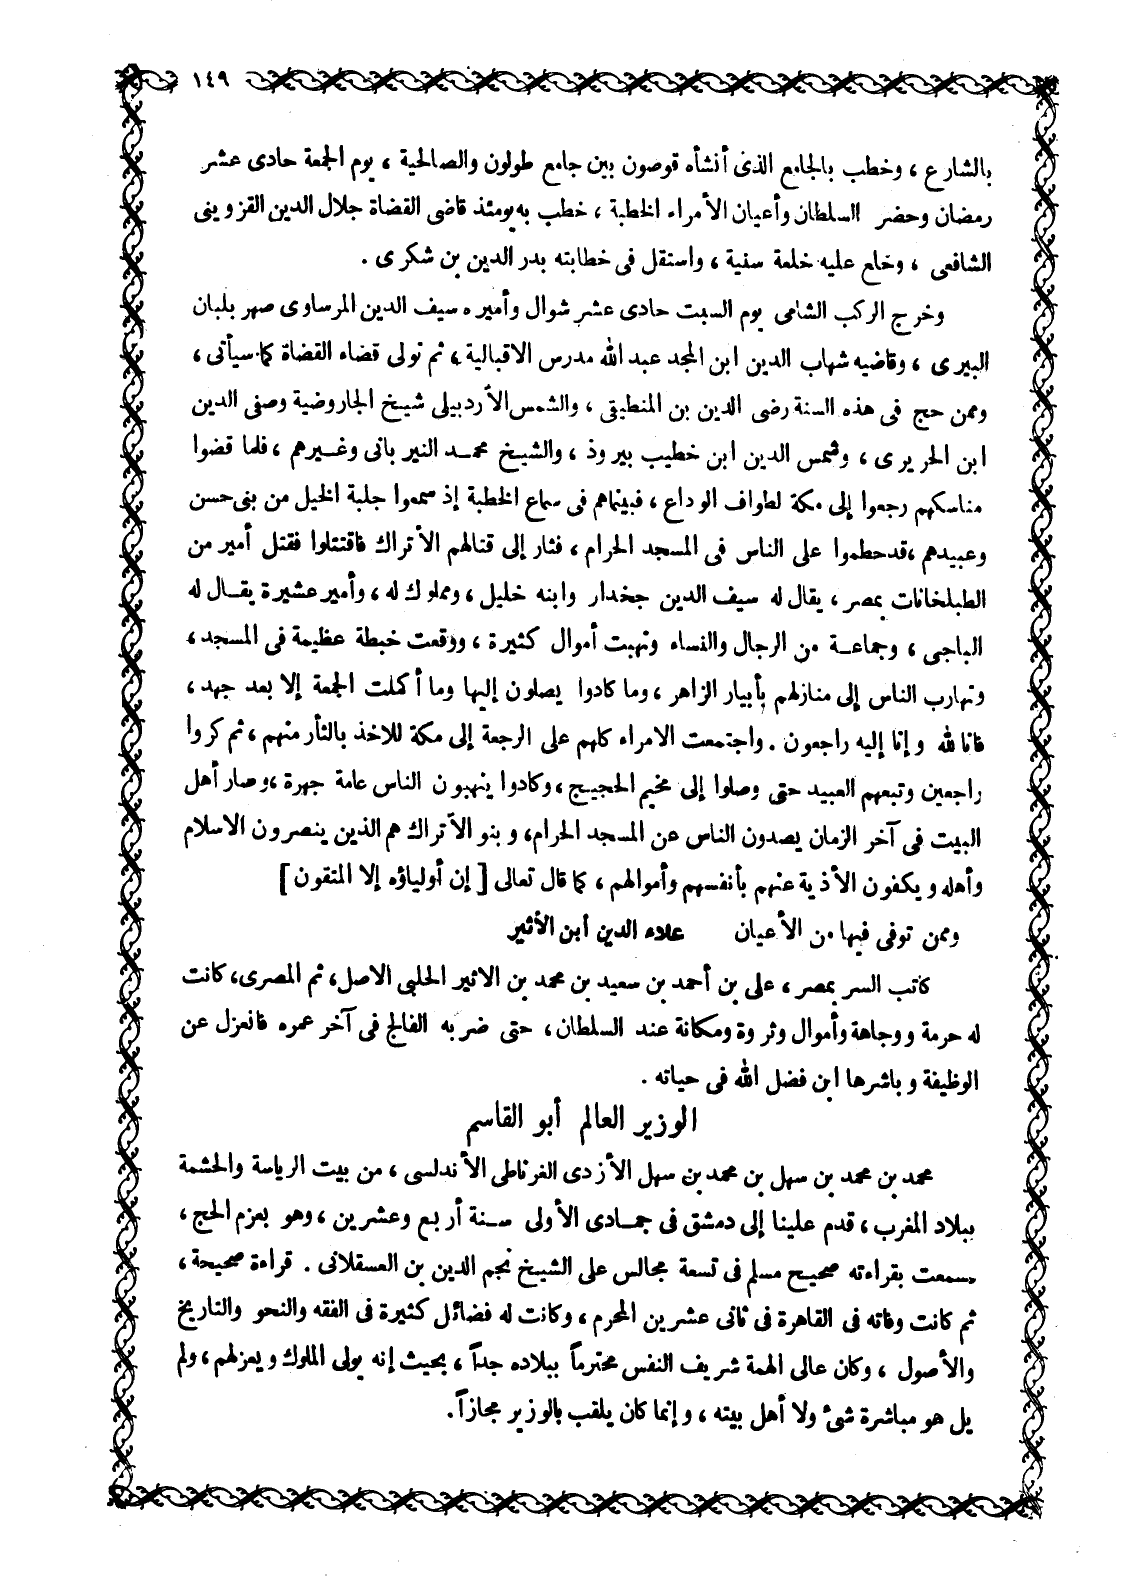 ١٤٩
بالشارع ، وخطب بالجامع الذى أنشأه قوصون بين جامع طولون والصالحية ، يوم الجمعة حادى عشر
رمضان وحضر السلطان وأعيان الأمراء الخطبة ، خطب به يومئذ قاضى القضاة جلال الدين القزوينى
الشافعى ، وخلع عليه خلعة سنية ، واستقل فى خطابته بدر الدين بن شكرى .
وخرج الركب الشامى يوم السبت حادى عشر شوال وأميره سيف الدين المرساوى صهر بلبان
البيرى ، وقاضيه شهاب الدين ابن المجد عبد الله مدرس الاقبالية ، ثم تولى قضاء القضاة كما سيأتى ،
وممن حج فى هذه السنة رضى الدين بن المنطيقى ، والشمس الأردبيلى شيخ الجاروضية وصفى الدين
ابن الحريرى ، وشمس الدين ابن خطيب بيروذ ، والشيخ محمد النيربانى وغيرهم ، فلما قضوا
مناسكهم رجعوا إلى مكة لطواف الوداع ، فبينماهم فى سماع الخطبة إذ سمعوا جلبة الخيل من بنى حسن
وعبيدهم ، قد حطموا على الناس فى المسجد الحرام ، فثار إلى قتالهم الأتراك فاقتتلوا فقتل أمير من
الطبلخانات بمصر ، يقال له سيف الدين جخدار وابنه خليل ، ومملوك له ، وأمير عشيرة يقال له
الباجى ، وجماعة من الرجال والنساء ونهبت أموال كثيرة ، ووقعت خبطة عظيمة فى المسجد ،
وتهارب الناس إلى منازلهم بأبيار الزاهر ، وما كادوا يصلون إليها وما أكملت الجمعة إلا بعد جهد ،
فانا لله وإنا إليه راجعون . واجتمعت الامراء كلهم على الرجعة إلى مكة للاخذ بالثأر منهم ، ثم كروا
راجعين وتبعهم العبيد حتى وصلوا إلى مخيم الحجيج ، وكادوا ينهبون الناس عامة جهرة ، وصار أهل
البيت فى آخر الزمان يصدون الناس عن المسجد الحرام ، وبنو الأتراك هم الذين ينصرون الاسلام
وأهله ويكفون الأذية عنهم بأنفسهم وأموالهم ، كما قال تعالى [ إن أولياؤه إلا المتقون ]
وممن توفى فيها من الأعيان علاء الدين أبن الأثير
كاتب السر بمصر ، على بن أحمد بن سعيد بن محمد بن الاثير الحلبى الاصل ، ثم المصرى ، كانت
له حرمة ووجاهة وأموال وثروة ومكانة عند السلطان ، حتى ضربه الفالج فى آخر عمره فانعزل عن
الوظيفة وباشرها ابن فضل الله فى حياته .
الوزير العالم أبو القاسم
محمد بن محمد بن سهل بن محمد بن سهل الأزدى الغرناطى الأندلسى ، من بيت الرياسة والحشمة
ببلاد المغرب ، قدم علينا إلى دمشق فى جمادى الأولى سنة أربع وعشرين ، وهو بعزم الحج ،
سمعت بقراءته صحيح مسلم فى تسعة مجالس على الشيخ نجم الدين بن العسقلانى . قراءة صحيحة ،
ثم كانت وفاته فى القاهرة فى ثانى عشرين المحرم ، وكانت له فضائل كثيرة فى الفقه والنحو والتاريخ
والأصول ، وكان عالى الهمة شريف النفس محترماً ببلاده جداً ، بحيث إنه يولى الملوك ويعزلهم ، ولم
يل هو مباشرة شئ ولا أهل بيته ، وإنما كان يلقب بالوزير مجازاً .